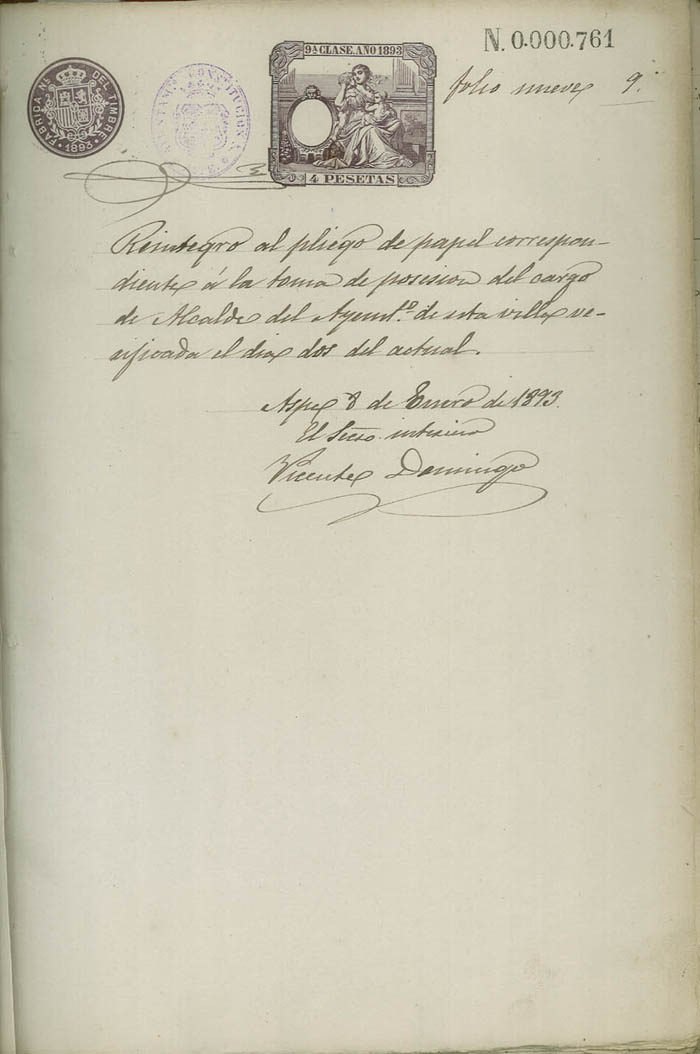 N. 0.000.761
9ª CLASE. AÑO 1893
FABRICA Nal DEL TIMBRE
1893
CONSTITUCION
folio nueve 9.
4 PESETAS
Reintegro al pliego de papel correspon-
diente á la toma de posesion del cargo
de Alcalde del Ayuntº de esta villa ve-
rificada el dia dos del actual.
Aspe 8 de Enero de 1893.
El Secrº interino
Vicente Domingo